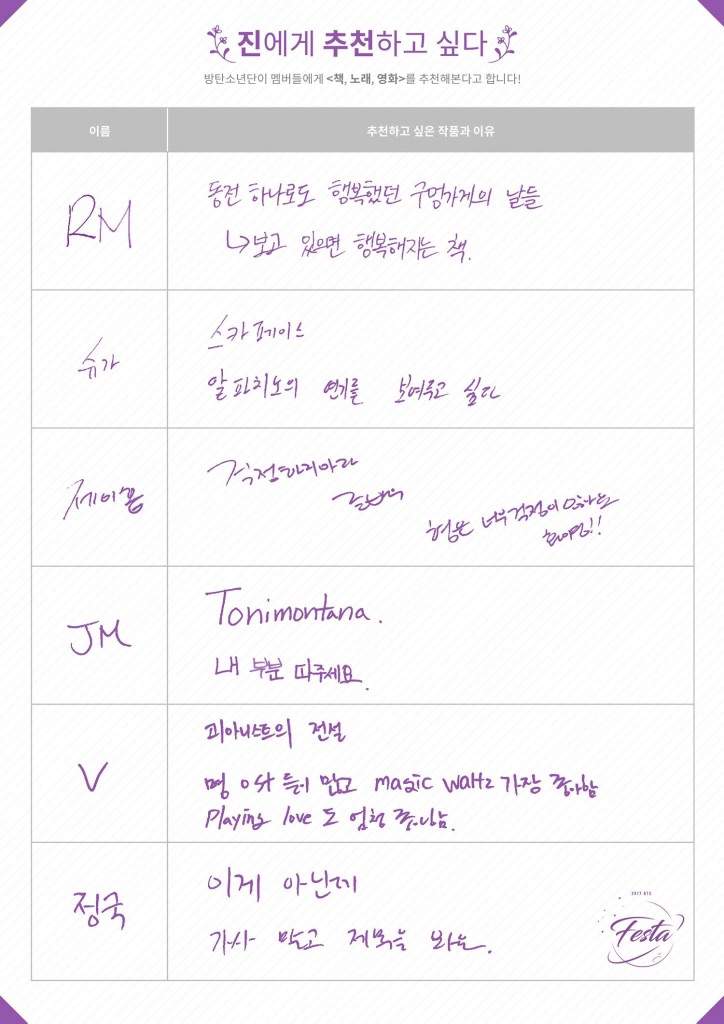 진에게 추천하고 싶다
방탄소년단이 멤버들에게 <책, 노래, 영화>를 추천해본다고 합니다!
이름
추천하고 싶은 작품과 이유
RM
동전 하나로도 행복했던 구멍가게의 날들
↳보고 있으면 행복해지는 책.
슈가
스카페이스
알파치노의 연기를 보여주고 싶다
제이홉
걱정하지마라
형은 너무 걱정이
JM
Tonimontana.
내 부분 따주세요.
V
피아니스트의 전설
명 ost 들이 많고 magic waltz 가장 좋아함
Playing love 도 엄청 좋아함.
정국
이게 아닌데
가사 말고 제목을 봐요.
2017 BTS
Festa